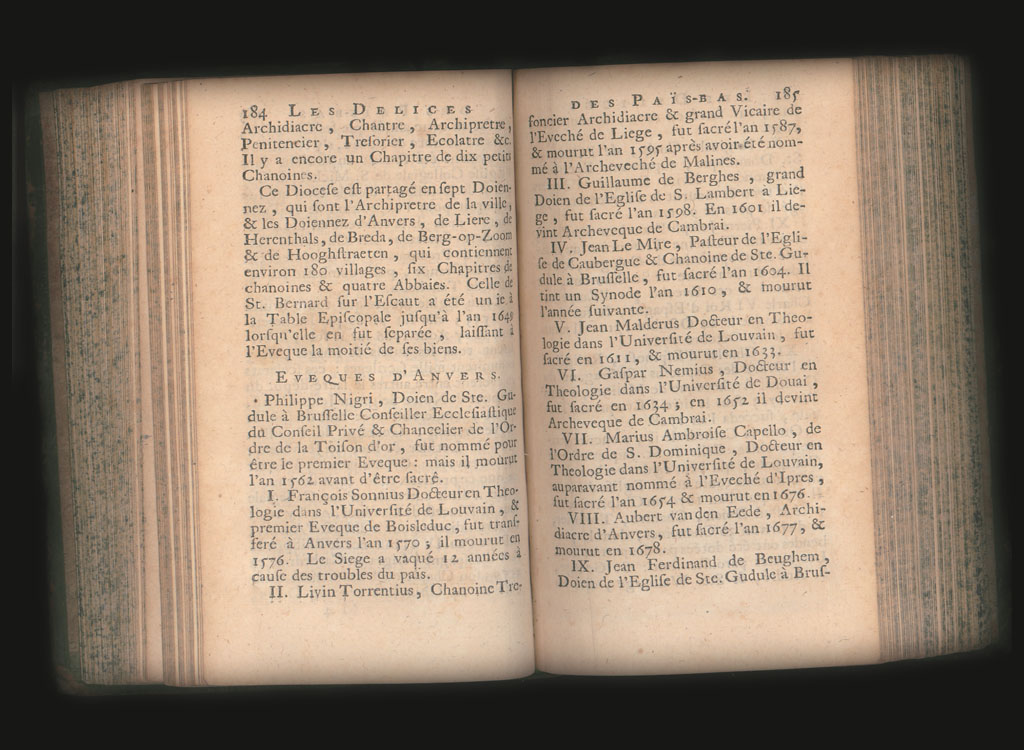 184 LES DELICES
Archidiacre, Chantre, Archipretre,
Penitencier, Tresorier, Ecolatre &c.
Il y a encore un Chapitre de dix petits
Chanoines.
Ce Diocese est partagé en sept Doien-
nez, qui sont l'Archipretre de la ville,
& les Doiennez d'Anvers, de Liere, de
Herenthals, de Breda, de Berg-op-Zoom
& de Hooghstraeten, qui contiennent
environ 180 villages, six Chapitres de
chanoines & quatre Abbaies. Celle de
St. Bernard sur l'Escaut a été unie à
la Table Episcopale jusqu'à l'an 1649
lorsqu'elle en fut separée, laissant à
l'Eveque la moitié de ses biens.
EVEQUES D'ANVERS.
Philippe Nigri, Doien de Ste. Gu-
dule à Brusselle Conseiller Ecclesiastique
du Conseil Privé & Chancelier de l'Or-
dre de la Toison d'or, fut nommé pour
être le premier Eveque : mais il mourut
l'an 1562 avant d'être sacré.
I. François Sonnius Docteur en Theo-
logie dans l'Université de Louvain, &
premier Eveque de Boisleduc, fut trans-
feré à Anvers l'an 1570 ; il mourut en
1576. Le Siege a vaqué 12 années à
cause des troubles du païs.
II. Livin Torrentius, Chanoine Tre-
DES PAÏS-BAS. 185
foncier Archidiacre & grand Vicaire de
l'Eveché de Liege, fut sacré l'an 1587,
& mourut l'an 1595 après avoir été nom-
mé à l'Archeveché de Malines.
III. Guillaume de Berghes, grand
Doien de l'Eglise de S. Lambert à Lie-
ge, fut sacré l'an 1598. En 1601 il de-
vint Archeveque de Cambrai.
IV. Jean Le Mire, Pasteur de l'Egli-
se de Caubergue & Chanoine de Ste. Gu-
dule à Brusselle, fut sacré l'an 1604. Il
tint un Synode l'an 1610, & mourut
l'année suivante.
V. Jean Malderus Docteur en Theo-
logie dans l'Université de Louvain, fut
sacré en 1611, & mourut en 1633.
VI. Gaspar Nemius, Docteur en
Theologie dans l'Université de Douai,
fut sacré en 1634 ; en 1652 il devint
Archeveque de Cambrai.
VII. Marius Ambroise Capello, de
l'Ordre de S. Dominique, Docteur en
Theologie dans l'Université de Louvain,
auparavant nommé à l'Eveché d'Ipres,
fut sacré l'an 1654 & mourut en 1676.
VIII. Aubert van den Eede, Archi-
diacre d'Anvers, fut sacré l'an 1677, &
mourut en 1678.
IX. Jean Ferdinand de Beughem,
Doien de l'Eglise de Ste. Gudule à Brus-